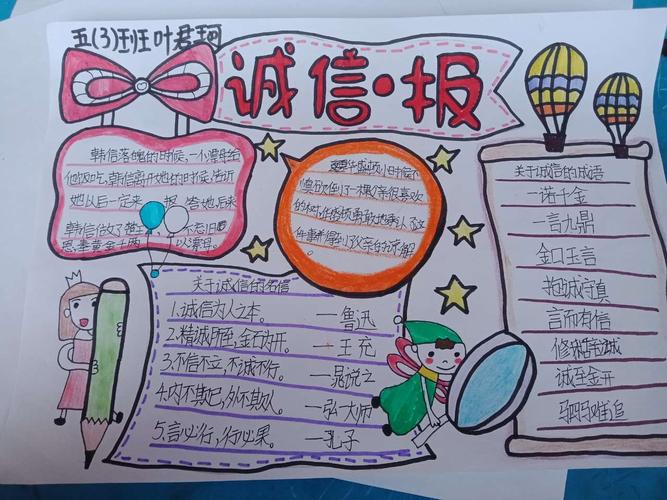 五(3)班叶君珂
诚信·报
韩信落魄的时候,一个漂母给
他饭吃,韩信离开她的时候,告诉
她以后一定来 报答她,后来
韩信做了楚王, 不忘旧
恩,拿黄金千两 以谢母。
华盛顿小时候不
小心砍倒了一棵父亲很喜欢
的树,华盛顿勇敢地承认了这
件事,得到了父亲的谅解
关于诚信的名信
1.诚信为人之本。 —鲁迅
2.精诚所至,金石为开。 —王充
3.不信不立,不诚不行。 —晁说之
4.内不欺己,外不欺人。 —弘一大师
5.言必行,行必果。 —孔子
关于诚信的成语
一诺千金
一言九鼎
金口玉言
抱诚守真
言而有信
修诚
诚至金开
驷马难追